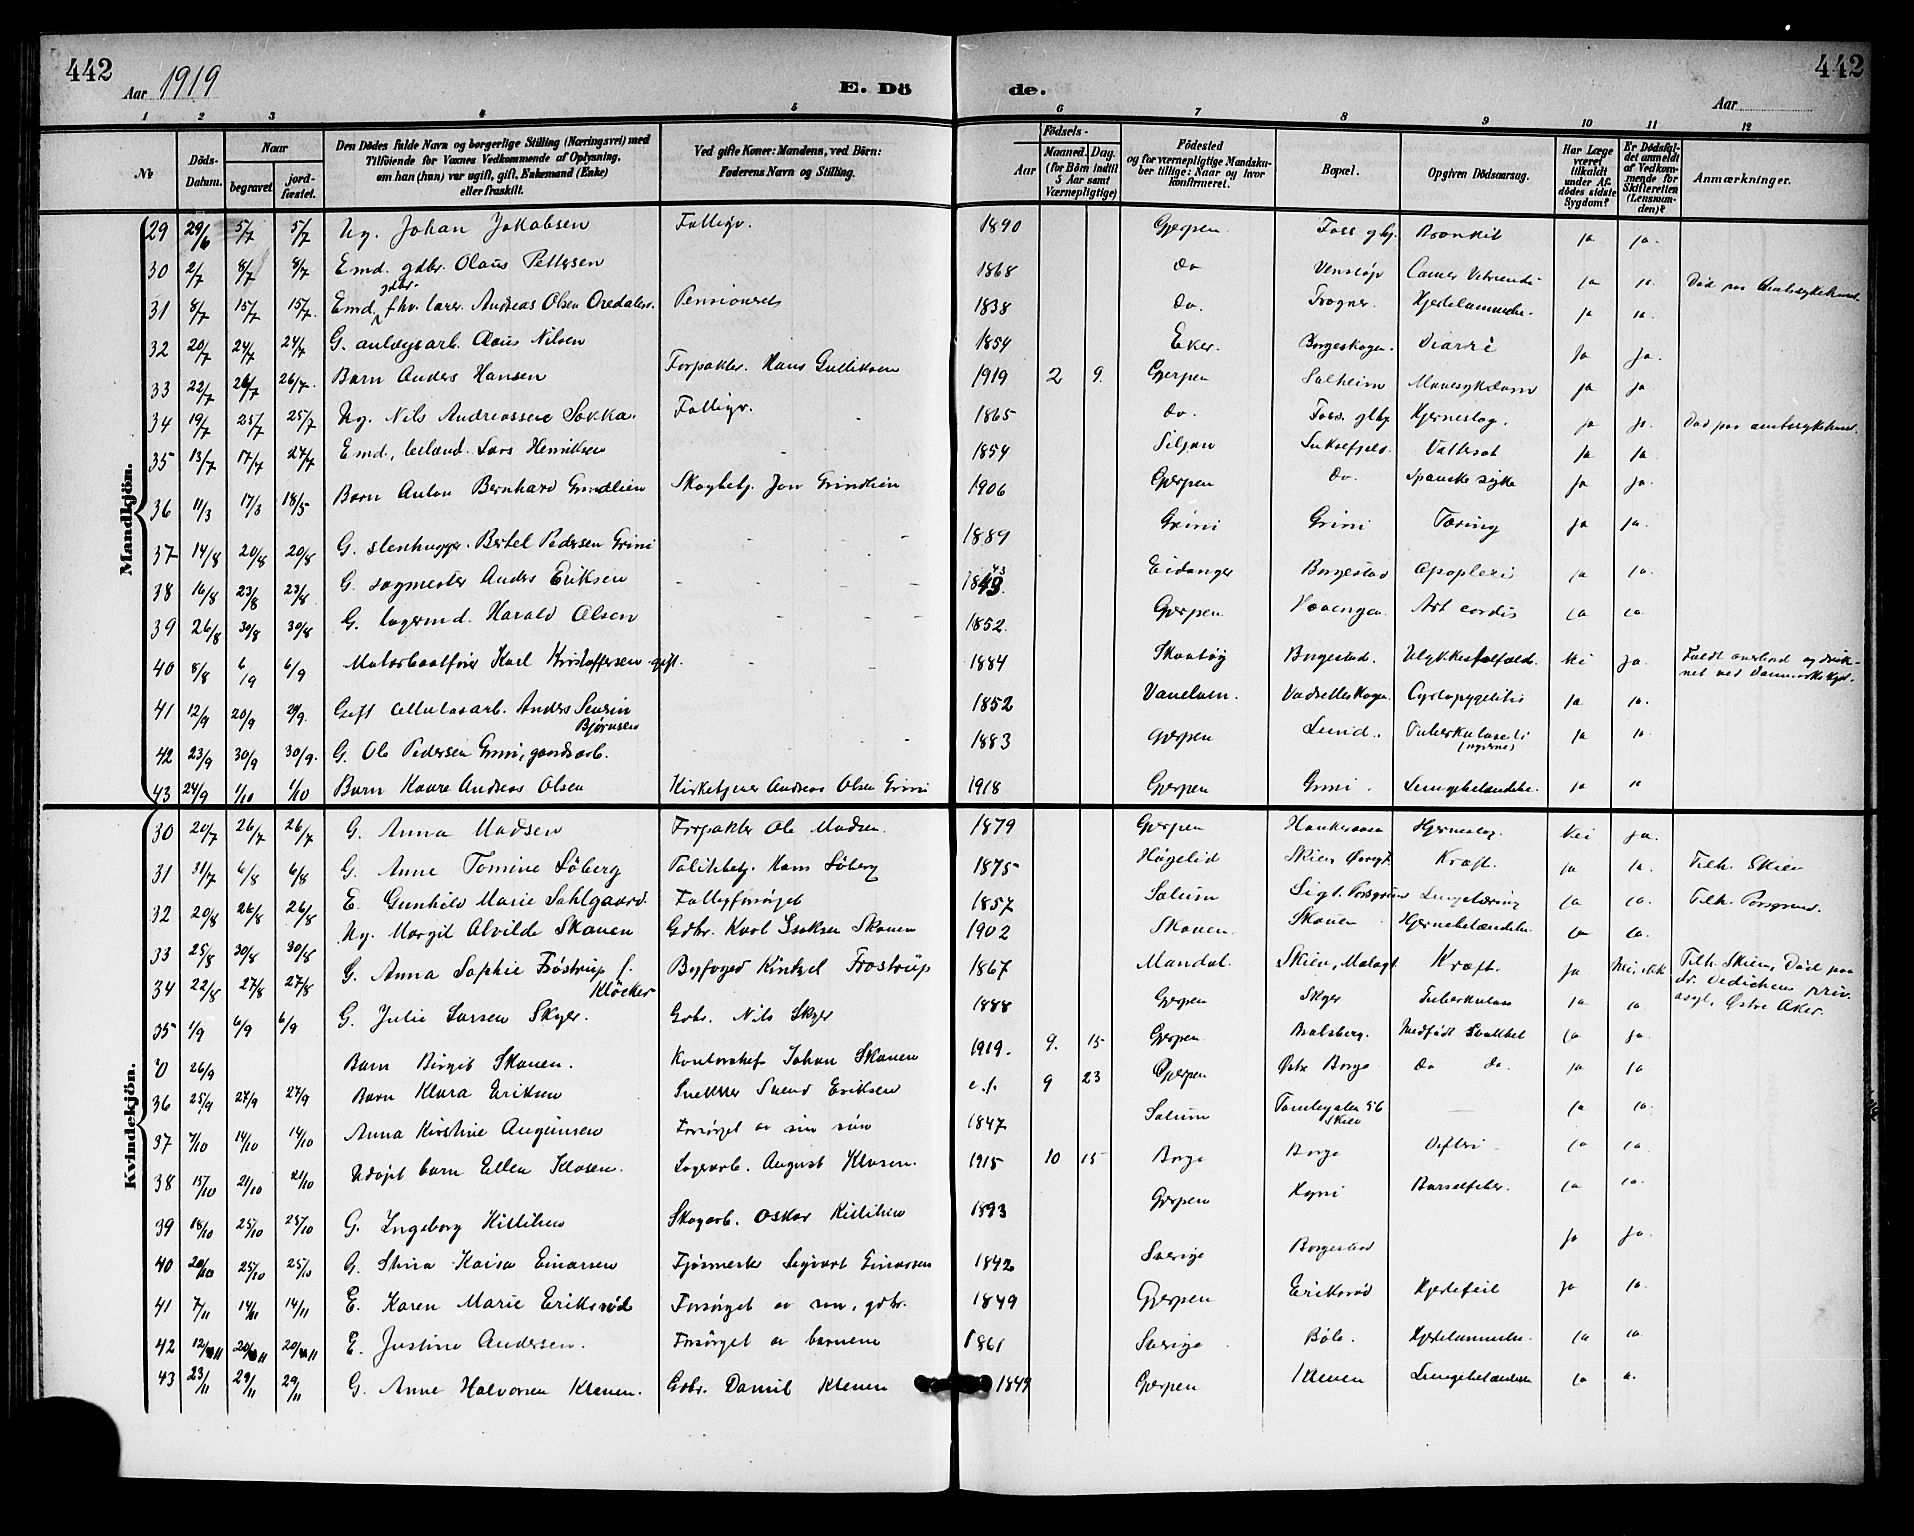 442
Aar 1919
E. Dö
de.
Aar
442
1 2 3 4 5 6 7 8 9 10 11 12
No
Döds-Datum.
Naar
begravet
jordfæstet.
Den Dödes fulde Navn og borgerlige Stilling (Næringsvei) med Tilföiende for Voxnes Vedkommende af Oplysning, om han (hun) var ugift, gift, Enkemand (Enke) eller fraskilt.
Ved gifte Koner: Mandens, ved Börn: Faderens Navn og Stilling.
Födsels-
Aar
Maaned. Dag.
(for Börn indtil 5 Aar samt Værnepligtige)
Födested og for værnepligtige Mandskuber tillige: Naar og hvor konfirmeret.
Bopæl.
Opgiven Dödsaarsag.
Har Læge været tilkaldt under Afdödes sidste Sygdom?
Er Dödsfaldet anmeldt af Vedkommende for Skifteretten (Lensmanden)?
Anmærkninger.
Mandkjön.
29 29/6 5/7 5/7 Ug. Johan Jakobsen Fattigv. 1890 Gjerpen Foss gbg. Bronkit ja ja.
30 2/7 8/7 8/7 Emd. gdbr. Olaus Pettersen 1868 do Venstøp Cancer ja ja. Død paa Amtssykehuset
31 8/7 15/7 15/7. Emd. gdbr. fhv. lærer Andreas Olsen Pensionert 1838 do. Frogner. Hjertelammelse. ja ja.
32 20/7 24/7 24/7 G. anlægsarb. Claus Nilsen 1854 Eker. Borgeskogen. Diarré ja ja.
33 22/7 26/7 26/7. Barn Anders Hansen Forpakter. Hans Gulliksen 1919 2 9. Gjerpen Solheim Mavesykdom ja ja.
34 19/7 25/7 25/7 Ug. Nils Andreassen Fattigv. 1865 do. Foss. gbg. Hjerneslag. ja ja. Død paa amtssykehuset.
35 13/7 17/7 27/7 Emd. Lars Henriksen 1854 Siljan Vattersot ja ja
36 11/3 17/3 18/5 Barn Anton Bernhard Grindlien Skogbetj. Jon Grindlien 1906 Gjerpen do. Spanske syke ja ja.
37 14/8 20/8 20/8 G. stenhugger. Bertel Pedersen Grini 1889 Grini Grini Tæring ja ja.
38 16/8 23/8 23/8. G. sagmester Anders Eriksen 1843 Eidanger Borgestad Apoplexi ja ja.
39 26/8 30/8 30/8 G. lagermd. Harald Olsen 1852. Gjerpen Art cordis ja ja.
40 8/8 6/9 6/9 Motorbaatfører Karl Kristoffersen gift. 1884 Skaatøy Borgestad. Ulykkestilfælde. Nei ja. Faldt overbord og druknet ved Danmarks kyst.
41 12/9 20/9 20/9. Gift cellulosearb. Anders Severin Bjørnsen 1852 Cystopyelitis ja ja.
42 23/9 30/9 30/9. G. Ole Pedersen Grini, gaardsarb. 1883 Gjerpen Lund. Tuberkulose (nyrene) ja ja
43 24/9 1/10 1/10 Barn Kaare Andreas Olsen Kirketjener Andreas Olsen Grini 1918 Gjerpen Grini. Lungebetændelse. ja ja
Kvindekjön.
30 20/7 26/7 26/7 G. Anna Madsen Forpakter Ole Madsen. 1879 Gjerpen Hjerneslag. Nei ja.
31 31/7 6/8 6/8 G. Anne Tomine Söberg Politibetj. Hans Söberg 1875 Høgelid Skien Kræft. ja ja. Tilh. Skien
32 20/8 26/8 26/8 E. Gunhild Marie Sahlgaard. Fattigforsørget 1857 Solum Porsgrund Lungetæring ja ja. Tilh. Porsgrund.
33 25/8 30/8 30/8 Ug. Margit Alvilde Skauen Gdbr. Karl Isaksen Skauen 1902 Skauen. Skauen Hjernebetændelse ja ja.
34 22/8 27/8 27/8 G. Anna Sophie Frøstrup f. Kløcker Byfoged Kintzel Frøstrup 1867 Mandal. Skien, Kræft. ja Nei Tilh. Skien, Død paa Dr. Dedichens priv. asyl, Østre Aker.
35 1/9 6/9 6/9 G. Julie Larsen Skyer. Gdbr. Nils Skyer 1888 Gjerpen Skyer Tuberkulose ja ja
0 26/9 Barn Birgit Skauen. Kontorchef Johan Skauen 1919. 9. 15 Gjerpen Bratsberg. Medfødt svakhet ja ja.
36 25/9 27/9 27/9 Barn Klara Eriksen Snekker Svend Eriksen 9 23 Gjerpen Østre Borge do do. ja ja
37 7/10 14/10 14/10 Anna Kirstine Forsørget av sin søn 1847 Solum 56 Skien ja ja.
38 15/10 21/10 21/10 Udøpt barn Ellen Klasen. Lagerarb. August Klasen. 1915 10 15 Borge Borge Difteri ja ja
39 18/10 25/10 25/10 G. Ingeborg Kittilsen Skogarb. Oskar Kittilsen 1893 Gjerpen Barselfeber. ja ja.
40 20/10 25/10 25/10 G. Stina Kaisa Einarsen Fjøsmester Sigvart Einarsen 1842 Sverige Borgestad ja ja.
41 7/11 14/11 14/11 E. Karen Marie Eriksrød Forsørget av søn, gdbr. 1849 Gjerpen Eriksrød Hjertefeil ja ja
42 12/11 20/11 20/11 E. Justine Andersen. Forsørget av barnene 1861 Sverige Bøle. Hjertelammelse. ja ja.
43 23/11 29/11 29/11 G. Anne Halvorsen Klauen. Gdbr. Daniel Klauen 1849 Gjerpen Klauen Lungebetændelse ja ja.